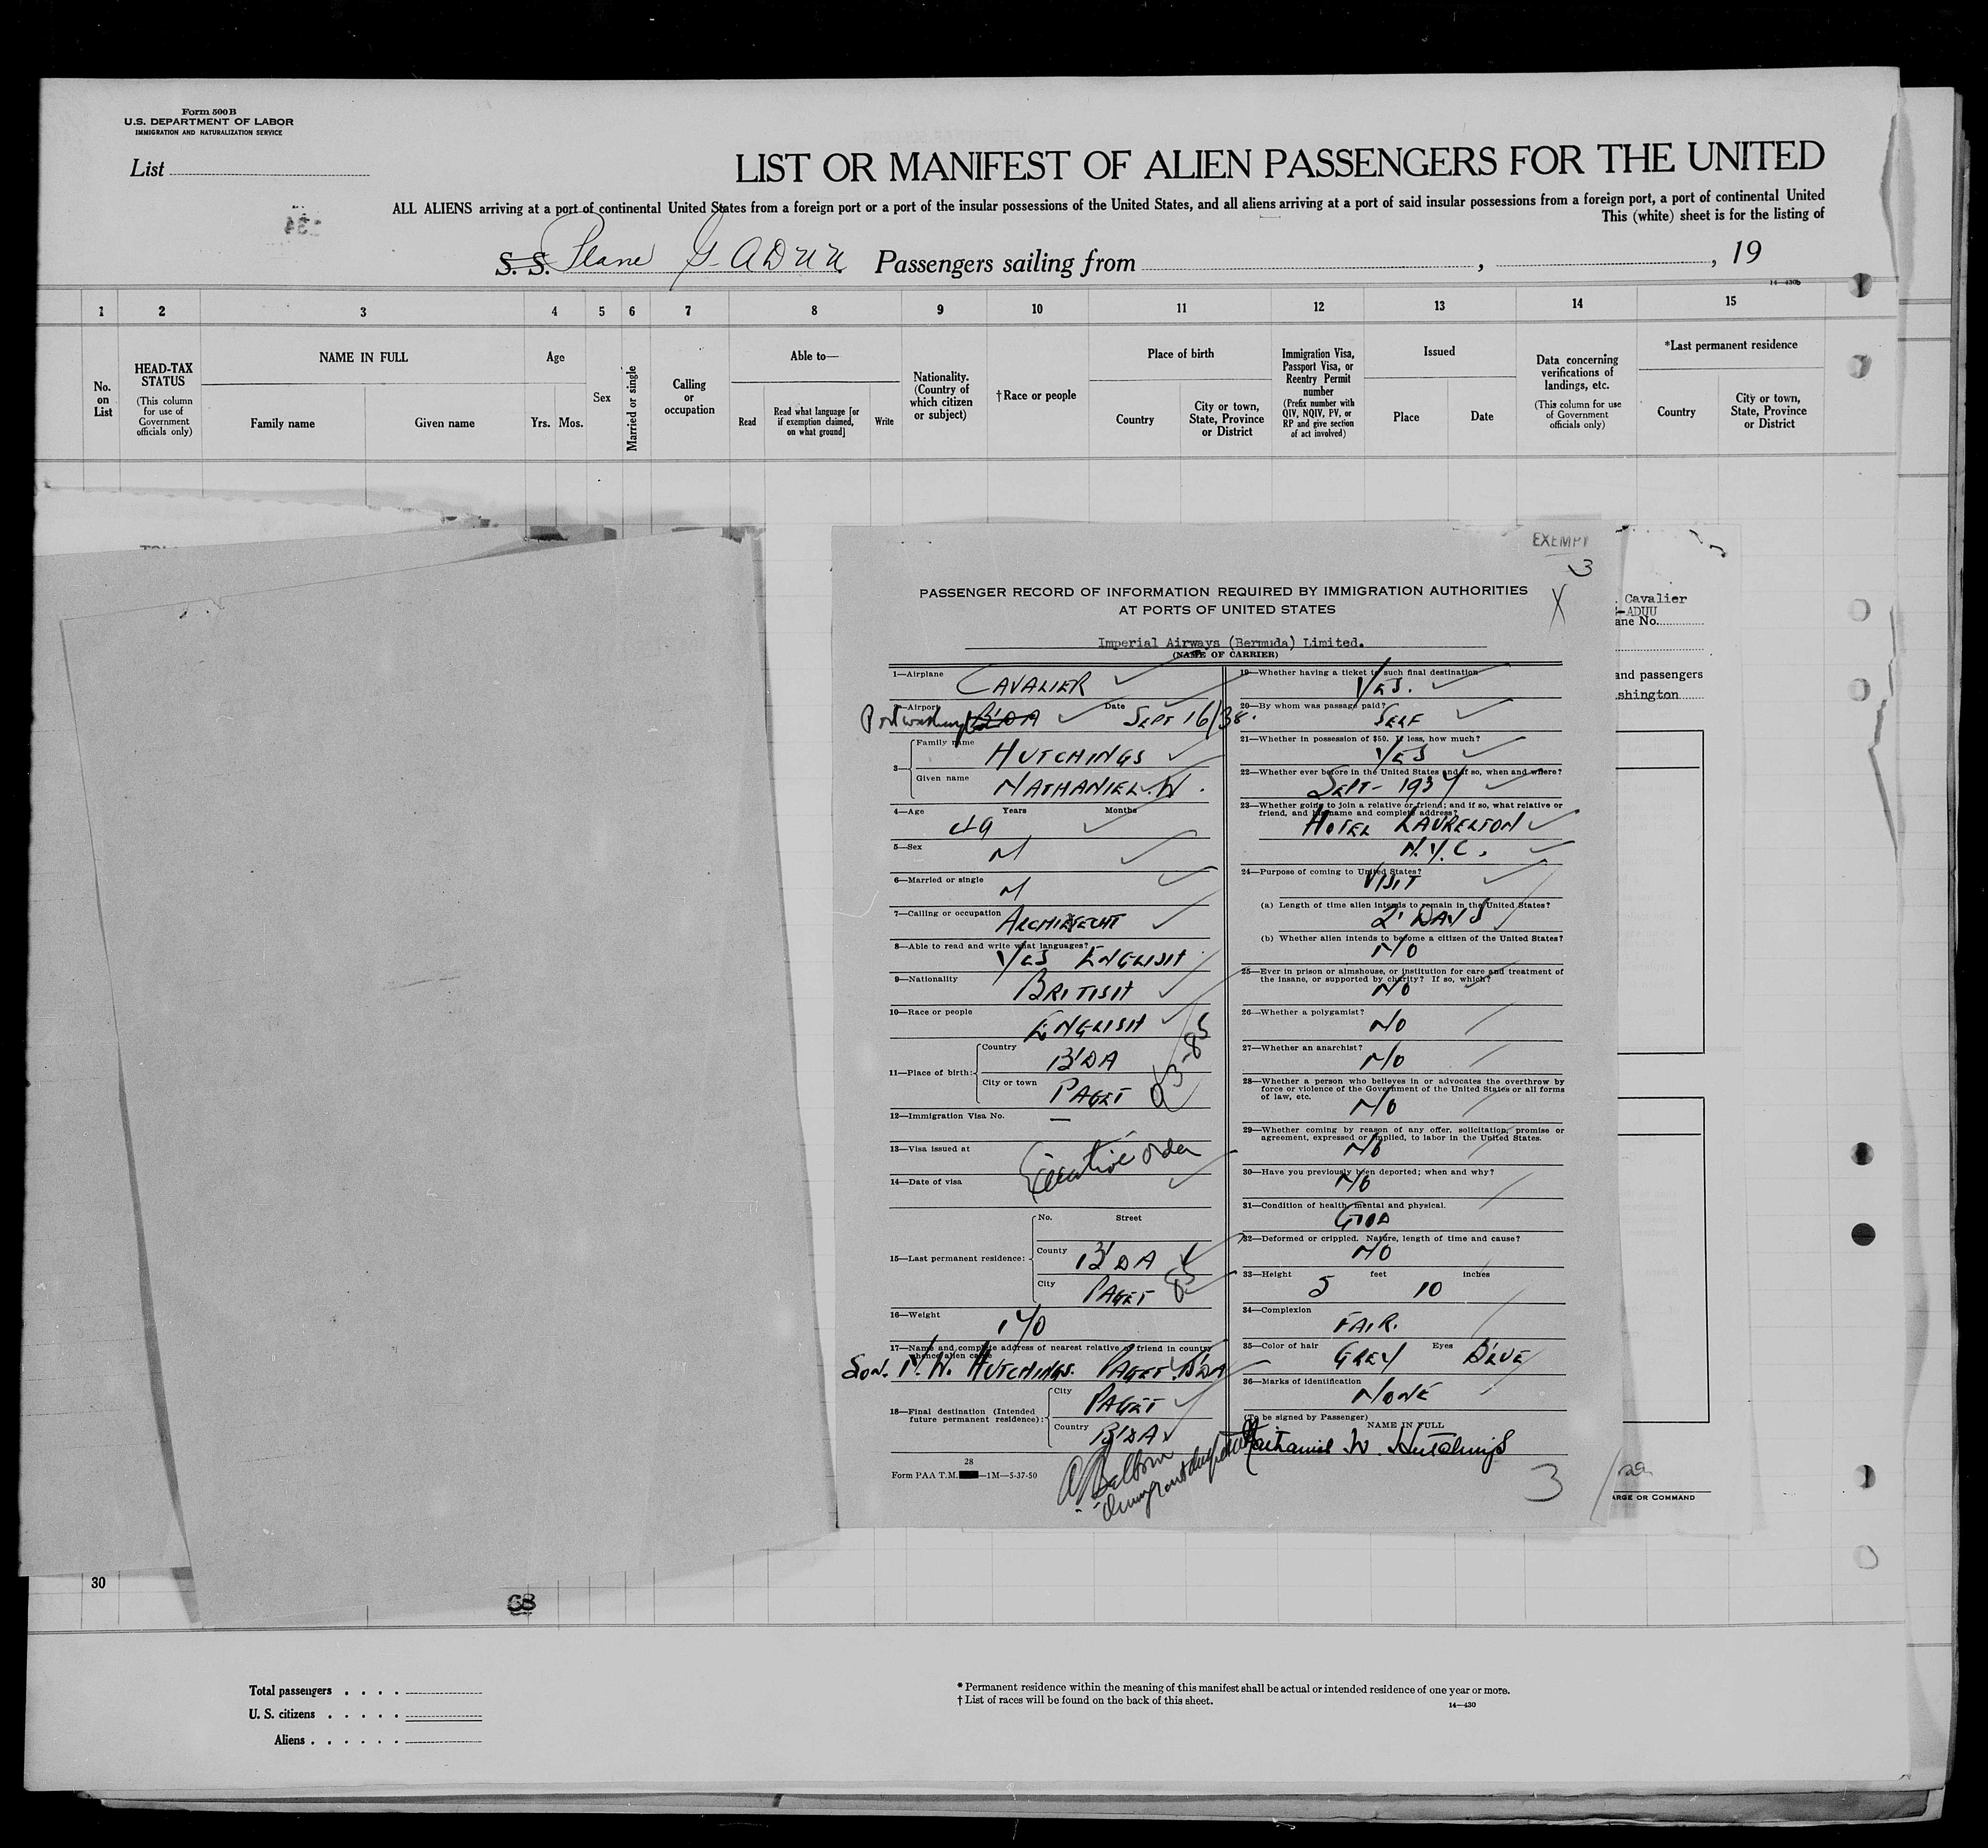 Form 500B
U.S. DEPARTMENT OF LABOR
IMMIGRATION AND NATURALIZATION SERVICE
List
LIST OR MANIFEST OF ALIEN PASSENGERS FOR THE UNITED
ALL ALIENS arriving at a port of continental United States from a foreign port or a port of the insular possessions of the United States, and all aliens arriving at a port of said insular possessions from a foreign port, a port of continental United
This (white) sheet is for the listing of
S. S. Plane G-ADUU Passengers sailing from , , 19
14—430b
1 2 3 4 5 6 7 8 9 10 11 12 13 14 15
No. on List
HEAD-TAX STATUS
(This column for use of Government officials only)
NAME IN FULL
Family name Given name
Age
Yrs. Mos.
Sex
Married or single
Calling or occupation
Able to—
Read
Read what language [or if exemption claimed, on what ground]
Write
Nationality. (Country of which citizen or subject)
†Race or people
Place of birth
Country
City or town, State, Province or District
Immigration Visa, Passport Visa, or Reentry Permit number
(Prefix number with QIV, NQIV, PV, or RP and give section of act involved)
Issued
Place Date
Data concerning verifications of landings, etc.
(This column for use of Government officials only)
*Last permanent residence
Country
City or town, State, Province or District
EXEMPT
3
X
PASSENGER RECORD OF INFORMATION REQUIRED BY IMMIGRATION AUTHORITIES
AT PORTS OF UNITED STATES
Imperial Airways (Bermuda) Limited.
(NAME OF CARRIER)
1—Airplane CAVALIER
2—Airport B'DA Date SEPT 16/38.
3— Family name HUTCHINGS
Given name NATHANIEL. W.
4—Age Years Months 49
5—Sex M
6—Married or single M
7—Calling or occupation ARCHITECHT
8—Able to read and write what languages? YES ENGLISH
9—Nationality BRITISH
10—Race or people ENGLISH
11—Place of birth: Country B'DA
City or town PAGET
12—Immigration Visa No. —
13—Visa issued at Executive order
14—Date of visa
15—Last permanent residence: No. Street
County B'DA
City PAGET 85
16—Weight 170
17—Name and complete address of nearest relative or friend in country whence alien came
SON. N. W. HUTCHINGS. PAGET. B'DA
18—Final destination (Intended future permanent residence): City PAGET
Country B'DA
28
Form PAA T.M. —1M—5-37-50
19—Whether having a ticket to such final destination YES.
20—By whom was passage paid? SELF
21—Whether in possession of $50. If less, how much? YES
22—Whether ever before in the United States and if so, when and where?
SEPT- 1937
23—Whether going to join a relative or friend; and if so, what relative or
friend, and his name and complete address?
HOTEL LAURELTON
N.Y.C.
24—Purpose of coming to United States? VISIT
(a) Length of time alien intends to remain in the United States?
2 DAYS
(b) Whether alien intends to become a citizen of the United States?
NO
25—Ever in prison or almshouse, or institution for care and treatment of
the insane, or supported by charity? If so, which?
NO
26—Whether a polygamist? NO
27—Whether an anarchist? NO
28—Whether a person who believes in or advocates the overthrow by
force or violence of the Government of the United States or all forms
of law, etc. NO
29—Whether coming by reason of any offer, solicitation, promise or
agreement, expressed or implied, to labor in the United States.
NO
30—Have you previously been deported; when and why? NO
31—Condition of health, mental and physical. GOOD
32—Deformed or crippled. Nature, length of time and cause? NO
33—Height 5 feet 10 inches
34—Complexion FAIR.
35—Color of hair GREY Eyes BLUE
36—Marks of identification NONE
(To be signed by Passenger)
NAME IN FULL
Nathaniel W. Hutchings
3
. Cavalier
-ADUU
ane No.
and passengers
shington
ARGE OR COMMAND
30
68
Total passengers
U. S. citizens
Aliens
* Permanent residence within the meaning of this manifest shall be actual or intended residence of one year or more.
† List of races will be found on the back of this sheet.
14—430